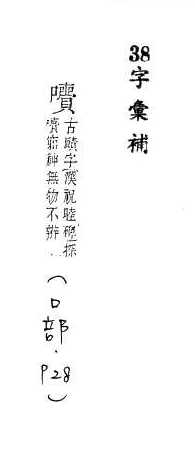 38字彙補
古賾字漢祝睦碑探
窮神無物不辨
(口部.P28)